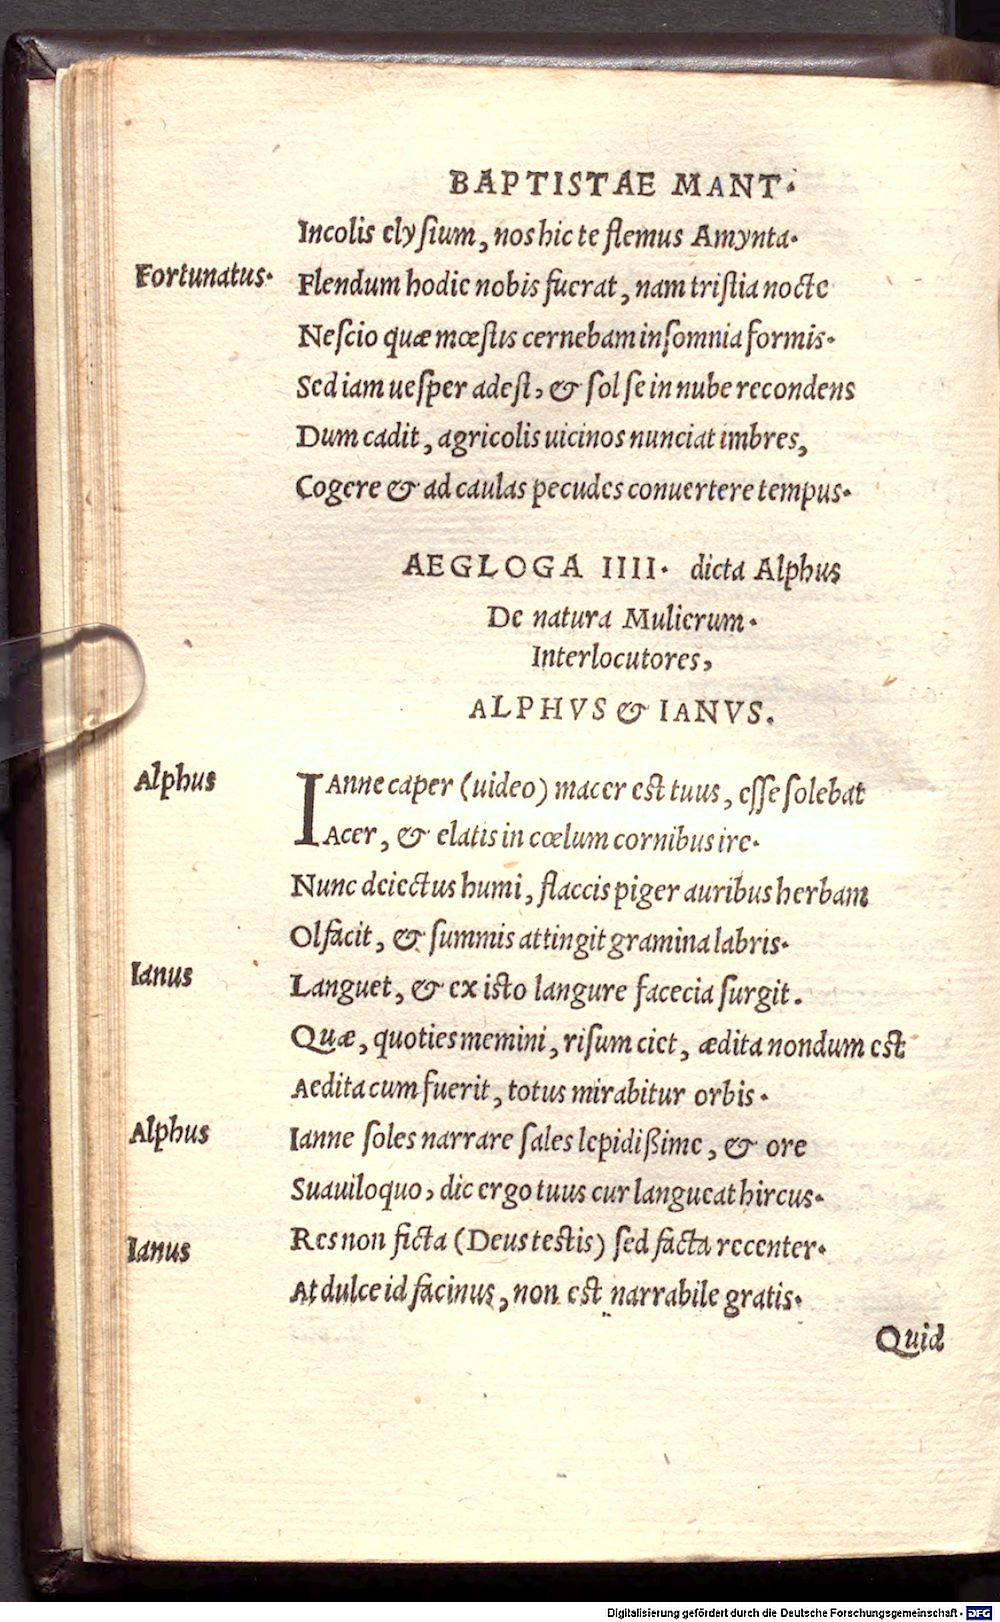 BAPTISTAE MANT.
Incolis elyſium, nos hic te flemus Amynta.
Fortunatus. Flendum hodie nobis fuerat, nam triſtia nocte
Neſcio quæ mœſtis cernebam inſomnia formis.
Sed iam ueſper adeſt, & ſol ſe in nube recondens
Dum cadit, agricolis uicinos nunciat imbres,
Cogere & ad caulas pecudes conuertere tempus.
AEGLOGA IIII. dicta Alphus
De natura Mulierum.
Interlocutores,
ALPHVS & IANVS.
Alphus IAnne caper (uideo) macer est tuus, eſſe ſolebat
Acer, & elatis in cœlum cornibus ire.
Nunc deiectus humi, flaccis piger auribus herbam
Olfacit, & ſummis attingit gramina labris.
Ianus Languet, & ex isto langure facecia ſurgit.
Quæ, quoties memini, riſum ciet, ædita nondum est
Aedita cum fuerit, totus mirabitur orbis.
Alphus Ianne ſoles narrare ſales lepidißime, & ore
Suauiloquo, dic ergo tuus cur langueat hircus.
Ianus Res non ficta (Deus testis) ſed facta recenter.
At dulce id facinus, non est narrabile gratis.
Quid
Digitalisierung gefördert durch die Deutsche Forschungsgemeinschaft - DFG